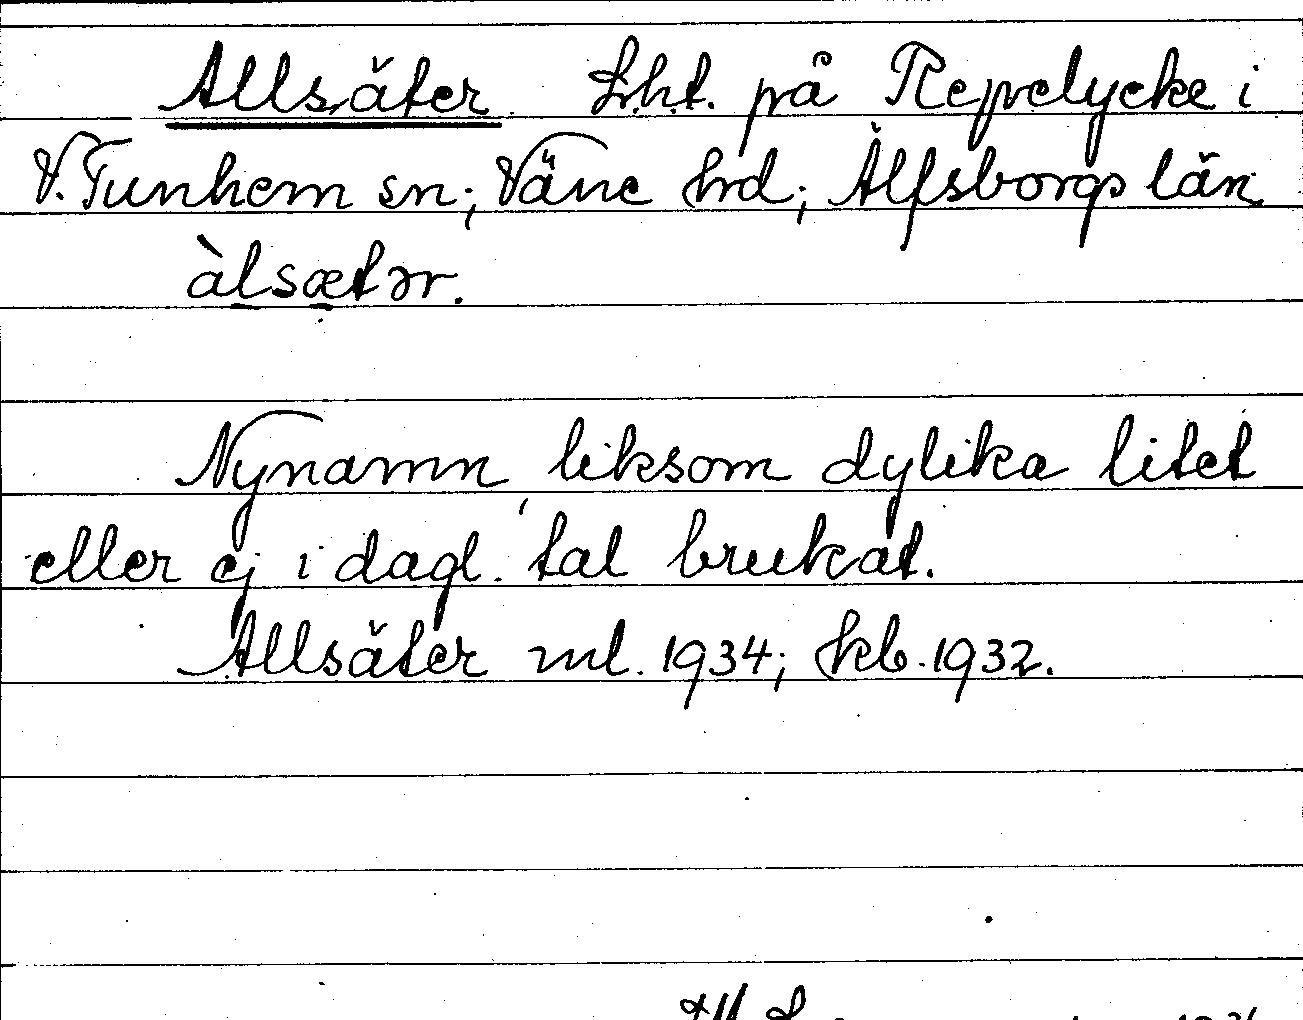 Allsäter. Lht. på Repelycke i
V. Tunhem sn; Väne hrd; Älfsborgs län.
àlsætər.
Nynamn, liksom dylika litet
eller ej i dagl. tal brukat.
Allsäter ml. 1934; kb. 1932.